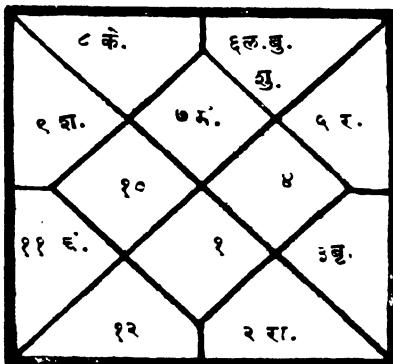 ८ के.
६ल.बु.
शु.
९ श.
७ मं.
५ र.
१०
४
११ चं.
१
३बृ.
१२
२ रा.